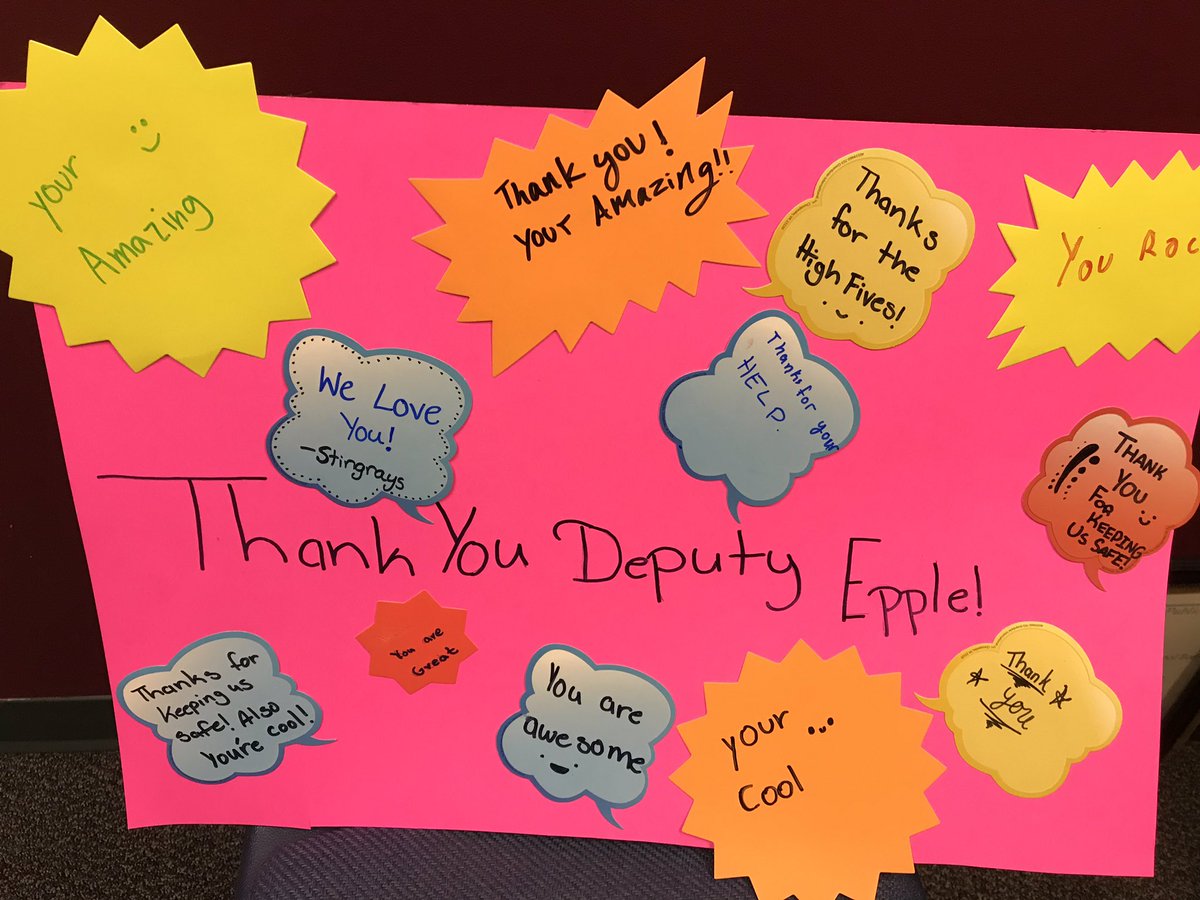 your
Amazing
Thank you!
your Amazing!!
Thanks
for the
High Fives!
You Roc
We Love
You!
-Stingrays
Thanks for your
HELP.
Thank
You
For
Keeping
Us Safe!
Thank You Deputy Epple!
Thanks for
Keeping us
safe! Also
You're cool!
You are
Great
You are
awesome
your
cool
Thank
you